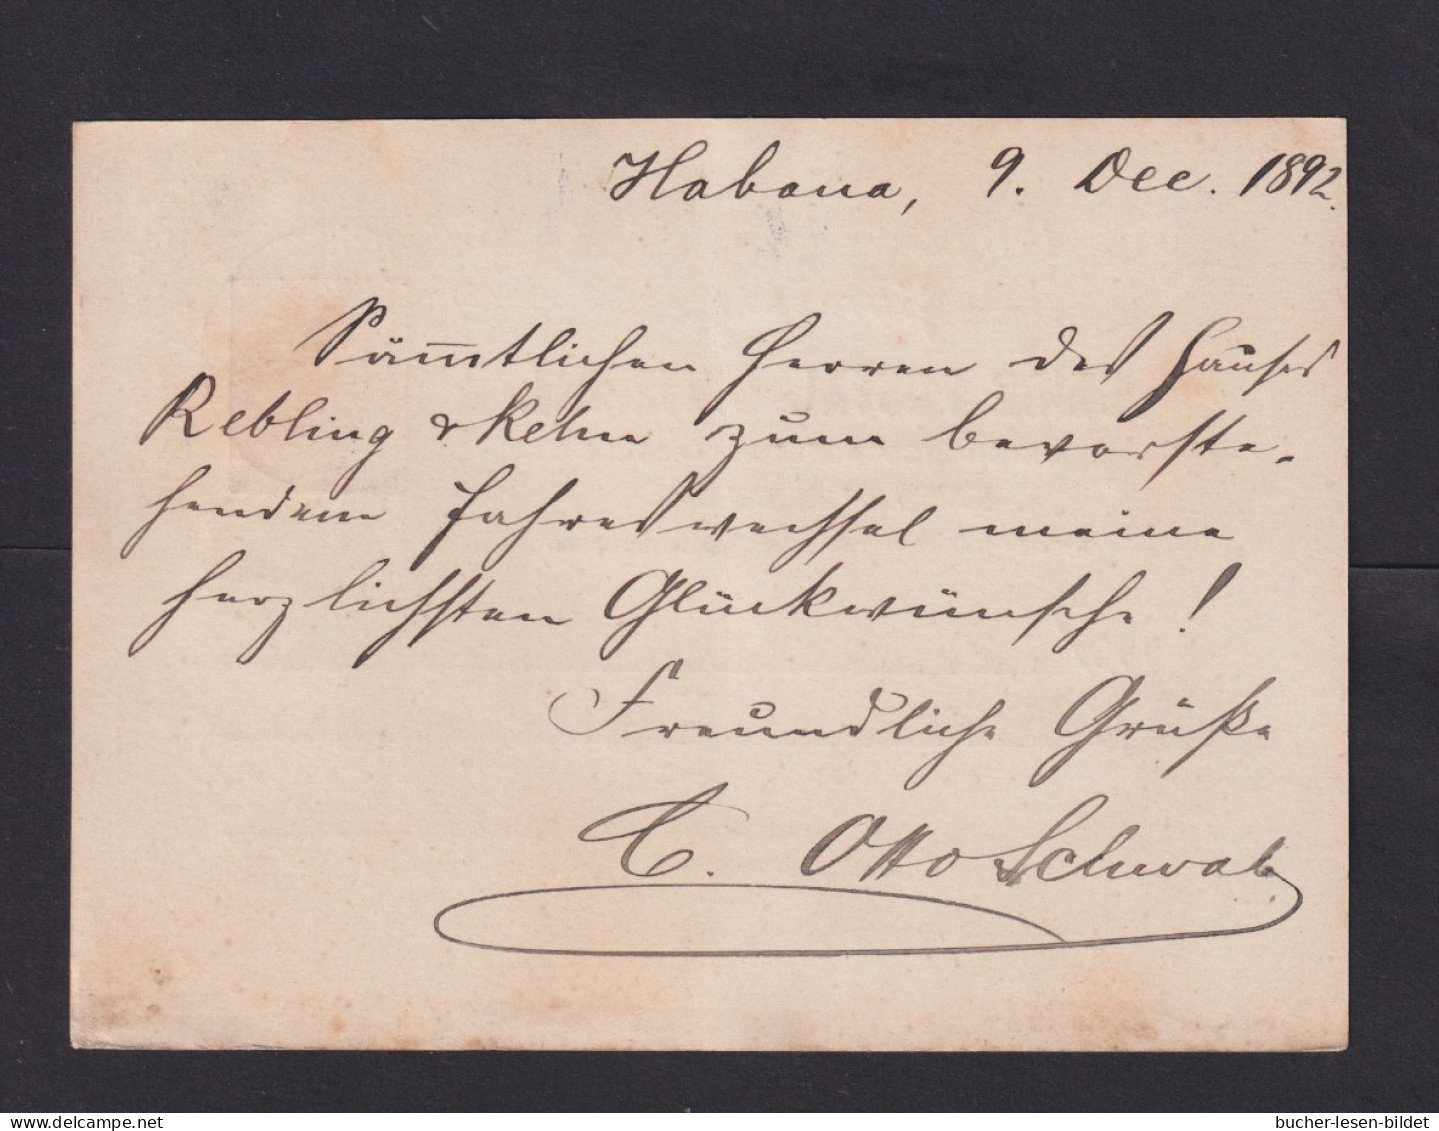 Habana, 9. Dec. 1892.
Sämmtlichen Herren des Hauses
Rebling & Kehn zum bevorste-
hendem Jahreswechsel meine
herzlichsten Glückwünsche!
Freundliche Grüße
C. Otto Schwab
bucher-lesen-bildet